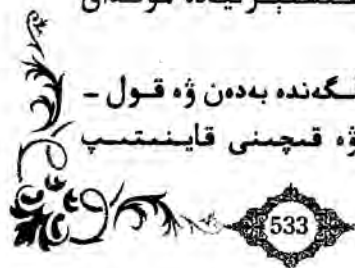 ـگەندە بەدەن ۋە قول ـ
ۋە قىچىنى قاينىتىپ
533